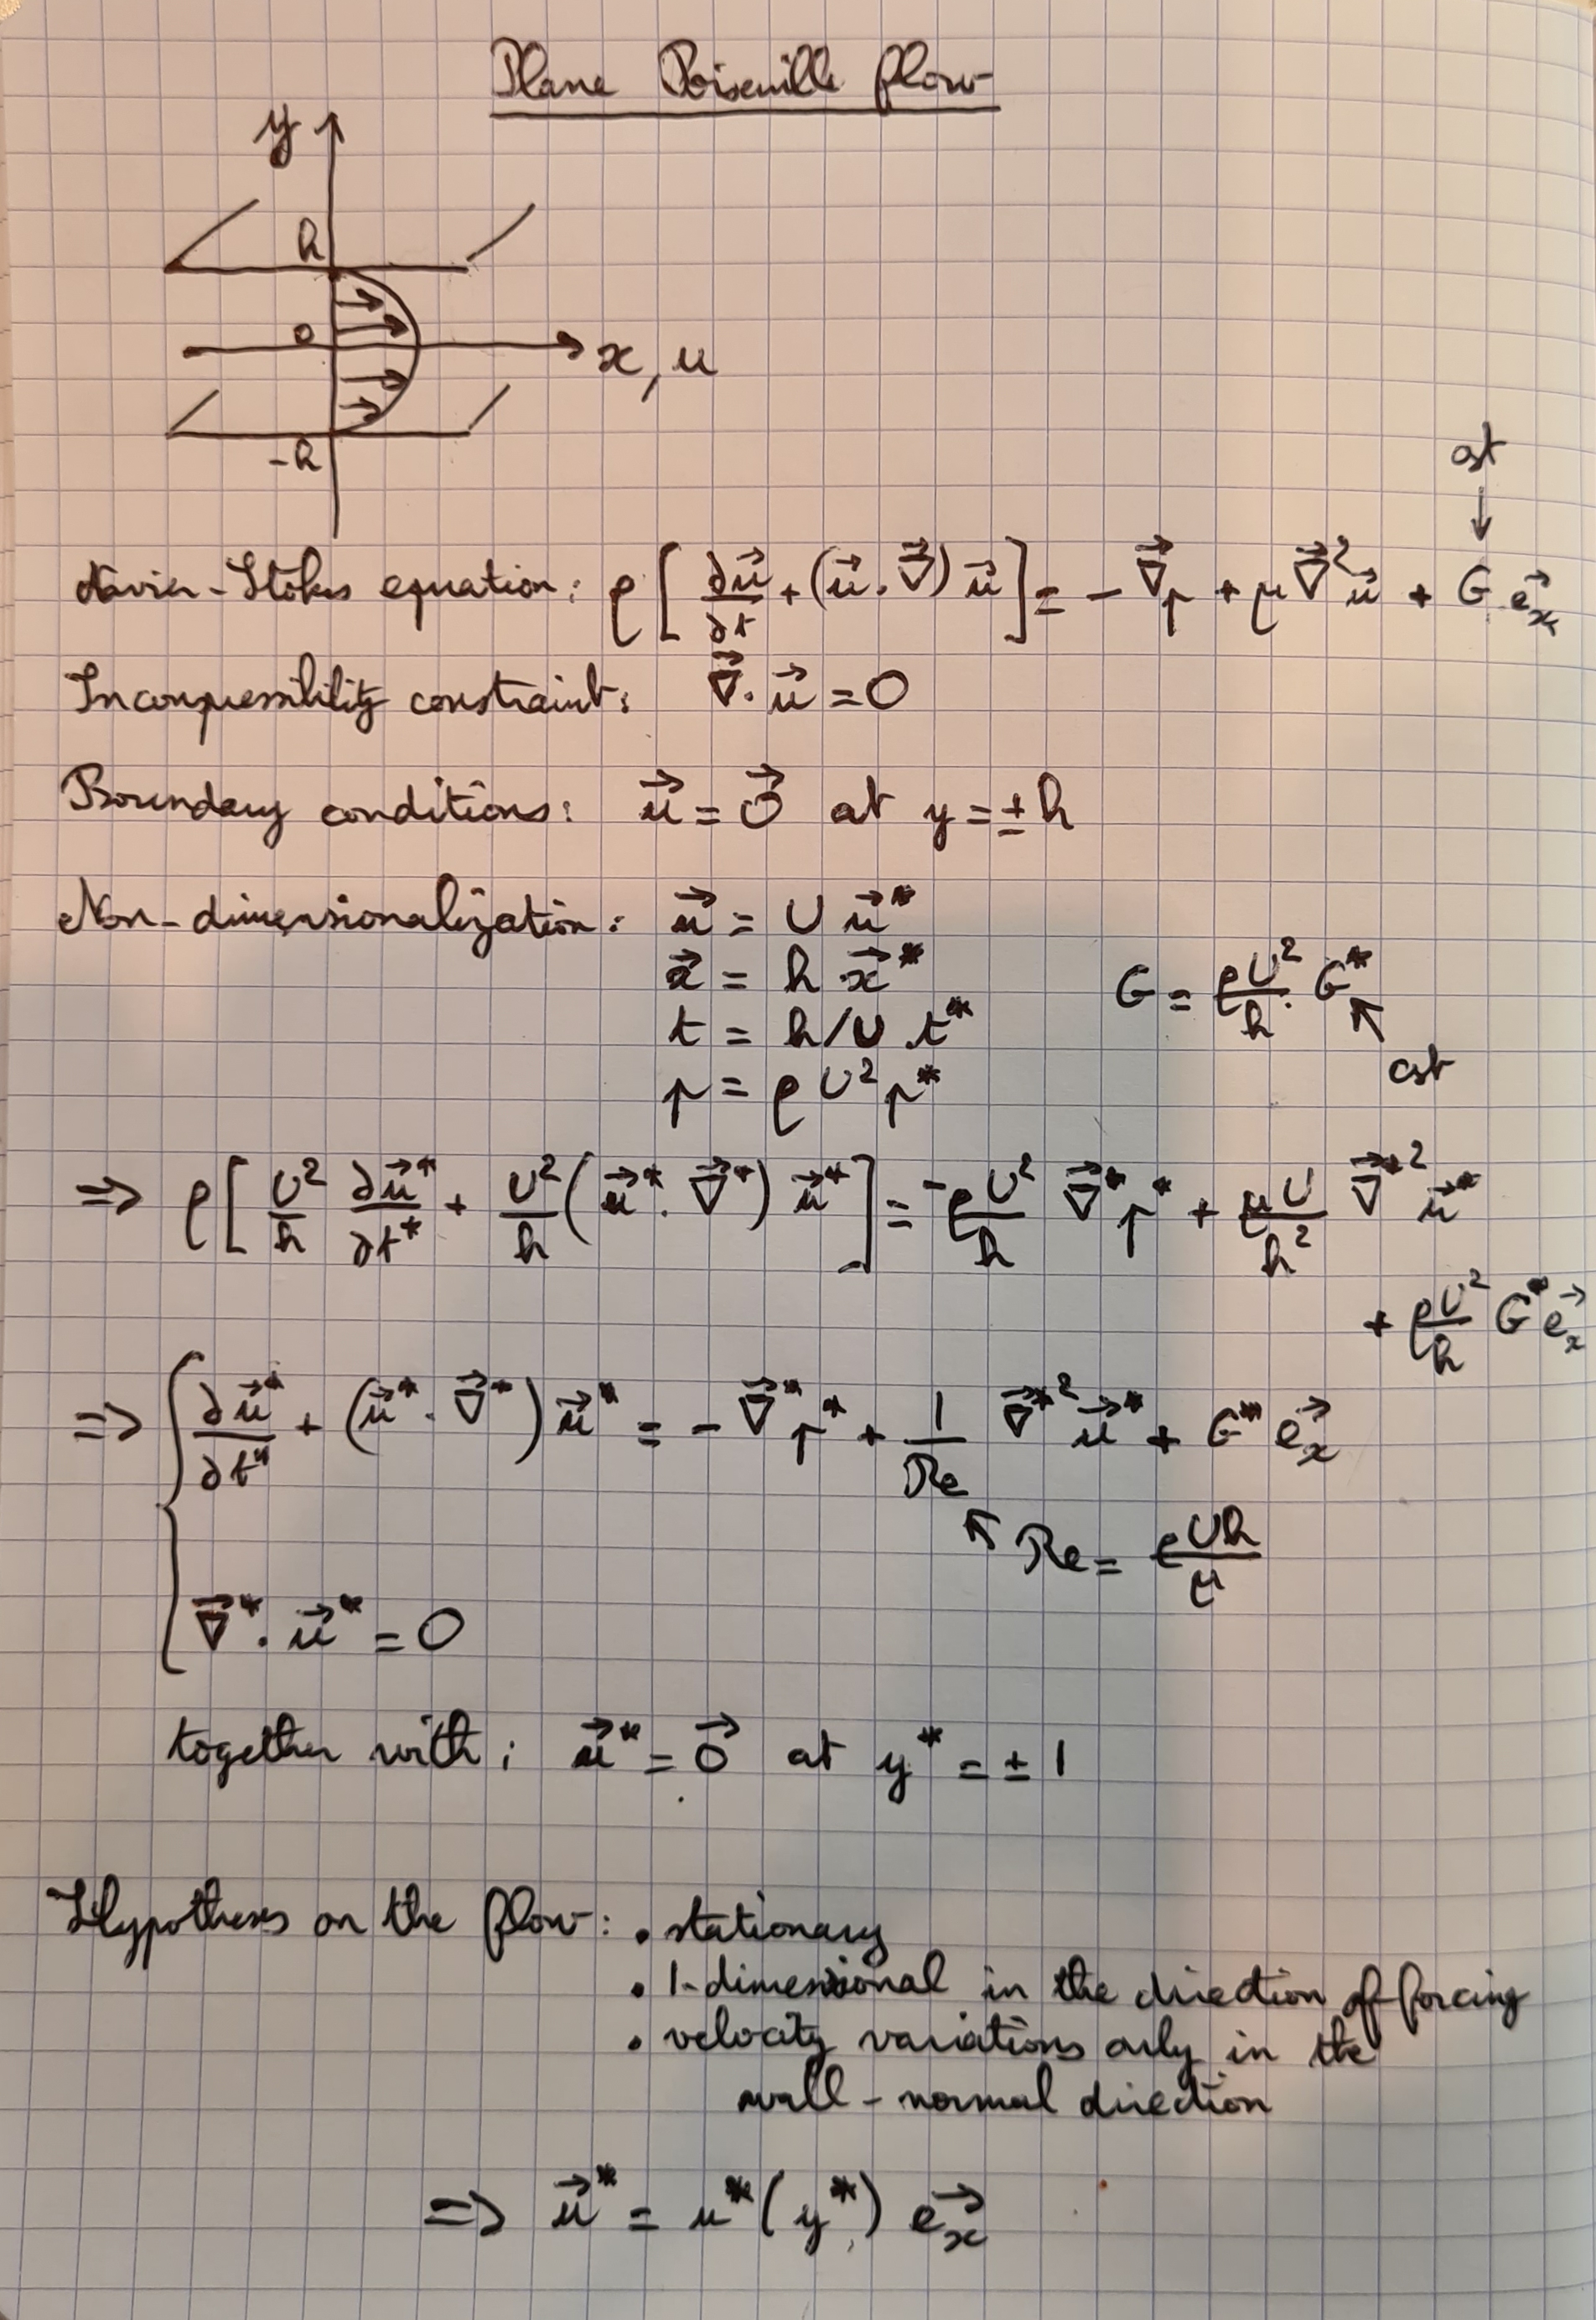 Plane Poiseuille flow
y
h
0
x, u
-h
cst
↓
Navier-Stokes equation: ρ[∂u⃗/∂t + (u⃗.∇⃗)u⃗] = -∇⃗p + μ∇⃗²u⃗ + G e⃗ₓ
Incompressibility constraint: ∇⃗.u⃗ = 0
Boundary conditions: u⃗ = 0⃗ at y = ± h
Non-dimensionalization: u⃗ = U u⃗*
x⃗ = h x⃗*
G = ρU²/h G*
t = h/U t*
cst
p = ρU² p*
=> ρ[U²/h ∂u⃗*/∂t* + U²/h (u⃗*.∇⃗*) u⃗*] = -ρU²/h ∇⃗*p* + μU/h² ∇⃗*² u⃗*
+ ρU²/h G* e⃗ₓ
=> { ∂u⃗*/∂t* + (u⃗*.∇⃗*) u⃗* = -∇⃗*p* + 1/Re ∇⃗*² u⃗* + G* e⃗ₓ
Re = ρUh/μ
∇⃗*.u⃗* = 0
together with: u⃗* = 0⃗ at y* = ± 1
Hypotheses on the flow: • stationary
• 1-dimensional in the direction of forcing
• velocity variations only in the
wall-normal direction
=> u⃗* = u*(y*) e⃗ₓ